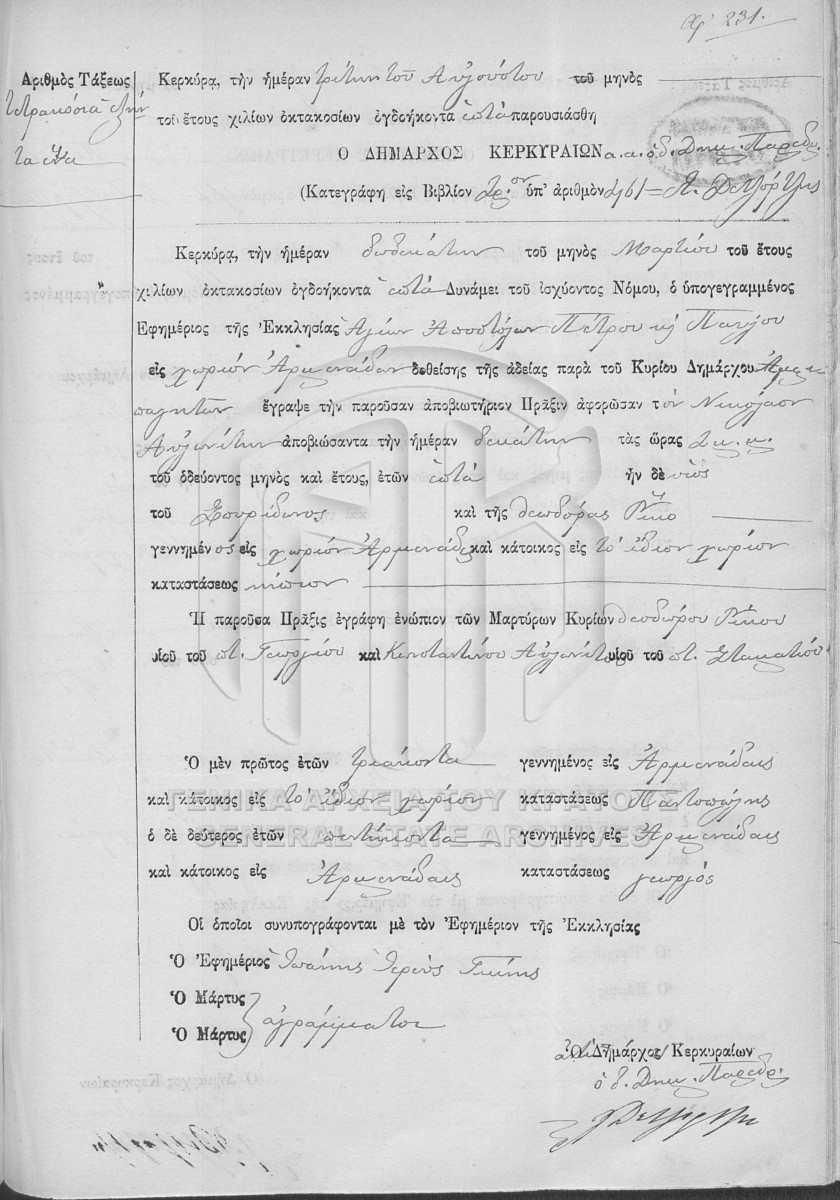 Ἀρ. 231.
Ἀριθμὸς Τάξεως
τετρακόσια ἑξήν
τα ἑπτα
Κερκύρᾳ, τὴν ἡμέραν τρίτην τοῦ Αὐγούστου τοῦ μηνὸς
τοῦ ἔτους χιλίων ὀκτακοσίων ὀγδοήκοντα ἑπτὰ παρουσιάσθη
Ὁ ΔΗΜΑΡΧΟΣ ΚΕΡΚΥΡΑΙΩΝ α.α. ὁ δ. Δημ. Πάρεδρ.
(Κατεγράφη εἰς Βιβλίον ὑπ' ἀριθμὸν
Κερκύρᾳ, τὴν ἡμέραν δωδεκάτην τοῦ μηνὸς Μαρτίου τοῦ ἔτους
χιλίων ὀκτακοσίων ὀγδοήκοντα ἑπτὰ Δυνάμει τοῦ ἰσχύοντος Νόμου, ὁ ὑπογεγραμμένος
Ἐφημέριος τῆς Ἐκκλησίας Ἁγίων Ἀποστόλων Πέτρου κ Παύλου
εἰς χωρίον Ἀρμενάδων δοθείσης τῆς ἀδείας παρὰ τοῦ Κυρίου Δημάρχου
παγητῶν ἔγραψε τὴν παροῦσαν ἀποβιωτήριον Πρᾶξιν ἀφορῶσαν τὸν Νικόλαον
Αὐλωνίτην ἀποβιώσαντα τὴν ἡμέραν δεκάτην τὰς ὥρας
τοῦ ὁδεύοντος μηνὸς καὶ ἔτους, ἐτῶν ἑπτὰ ἦν δὲ υἱὸς
τοῦ Σπυρίδωνος καὶ τῆς Θεοδώρας Ρίκο
γεννημένος εἰς χωρίον Ἀρμενάδες καὶ κάτοικος εἰς τὸ ἴδιον χωρίον
καταστάσεως νήπιον
Ἡ παροῦσα Πρᾶξις ἐγράφη ἐνώπιον τῶν Μαρτύρων Κυρίων Θεοδώρου Ρίκου
υἱοῦ τοῦ ποτ. Γεωργίου καὶ Κωνσταντίνου Αὐλωνίτου υἱοῦ τοῦ ποτ. Σταματίου
Ὁ μὲν πρῶτος ἐτῶν τριάκοντα γεννημένος εἰς Ἀρμενάδαις
καὶ κάτοικος εἰς τὸ ἴδιον χωρίον καταστάσεως Παντοπώλης
ὁ δὲ δεύτερος ἐτῶν πεντήκοντα γεννημένος εἰς Ἀρμενάδαις
καὶ κάτοικος εἰς Ἀρμενάδαις καταστάσεως γεωργός
Οἱ ὁποῖοι συνυπογράφονται μὲ τὸν Ἐφημέριον τῆς Ἐκκλησίας
Ὁ Ἐφημέριος Ἰωάννης Ἱερεὺς
Ὁ Μάρτυς
Ὁ Μάρτυς ἀγράμματοι
Ὁ Δήμαρχος Κερκυραίων
ὁ δ. Δημ. Πάρεδρ.
ΓΕΝΙΚΑ ΑΡΧΕΙΑ ΤΟΥ ΚΡΑΤΟΥΣ
GENERAL STATE ARCHIVES